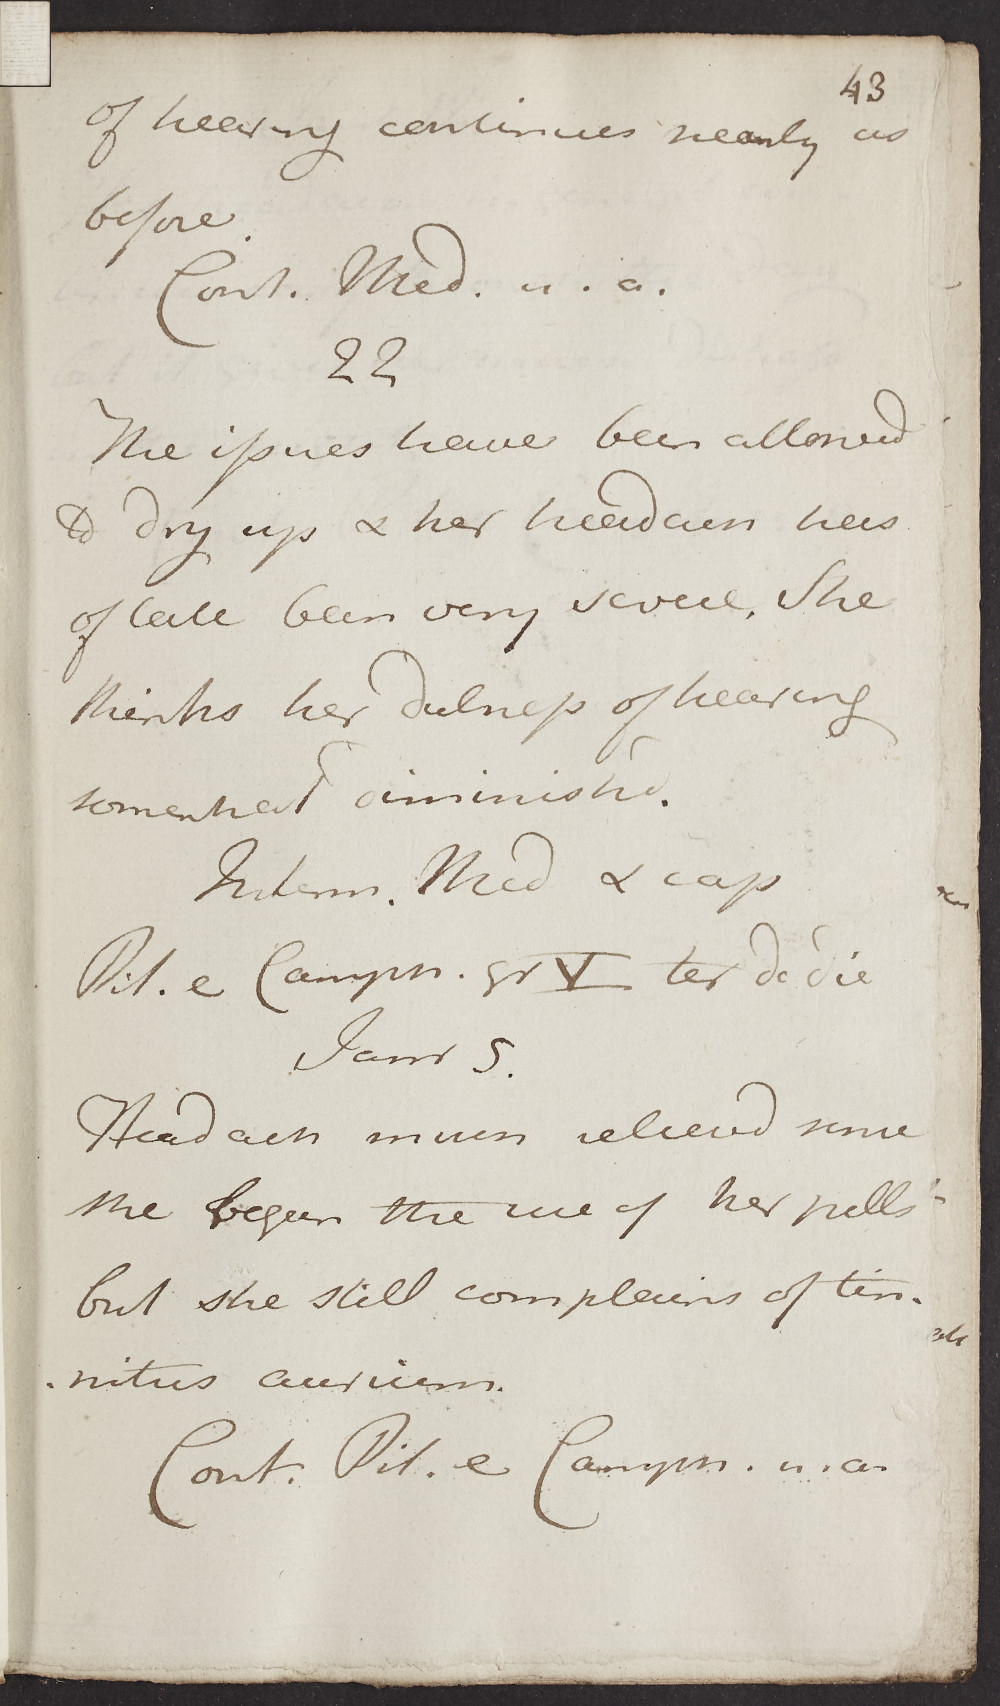 43
of hearing continues nearly as
before.
Cont. Med. u. a.
22
The issues have been allowed
to dry up & her headach has
of late been very severe. She
thinks her dulness of hearing
somewhat diminish'd.
Interm. Med & cap
Pil. e Camph. gr V ter de die
Janr 5.
Headach much relieved since
she began the use of her pills
but she still complains of tin-
-nitus aurium.
Cont. Pil. e Camph. u. a.